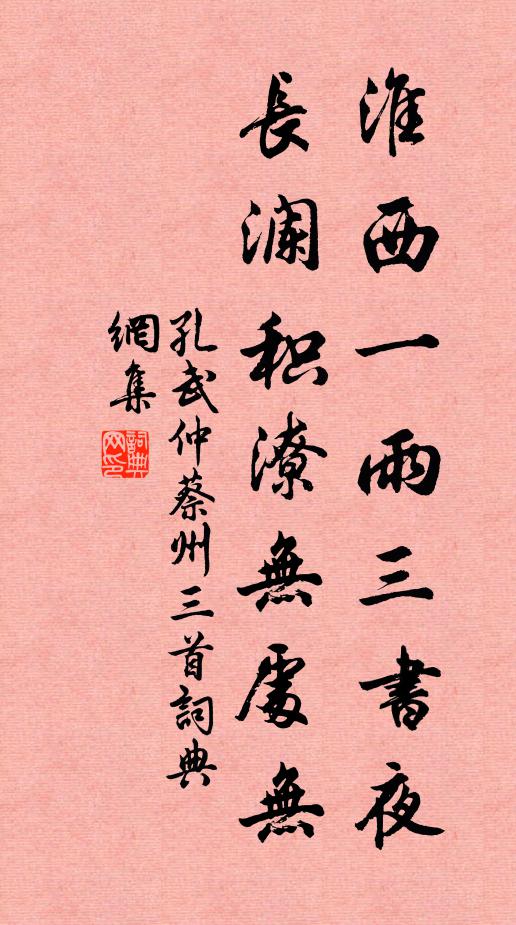 淮西一雨三書夜
長瀾积潦無處無
孔武仲蔡州三首詞典
網集
詞典
网印